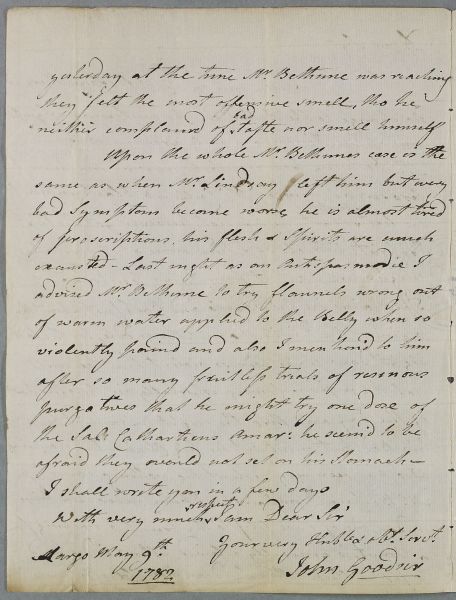 yesterday at the time Mr. Bethune was reaching
they felt the most offensive smell, tho he
neither complained of bad taste nor smell himself
Upon the whole Mr. Bethunes case is the
same as when Mr. Lindsay left him but every
bad Symptom become worse, he is almost tired
of prescriptions, his flesh & Spirits are much
exausted. Last night as an Antispasmodic I
advised Mr. Bethune to try flannels wrong out
of warm water applied to the Belly when so
violently paind and also I mentiond to him
after so many fruitless trials of resinous
purgatives that he might try one dose of
the Sal: Catharticus Amar: he seemd to be
afraid they would not set on his Stomach –
I shall write you in a few days
With very much respect I am Dear Sir
Your very Humble & Obt. Servt.
Largo May 9th.
1782 John Goodsir